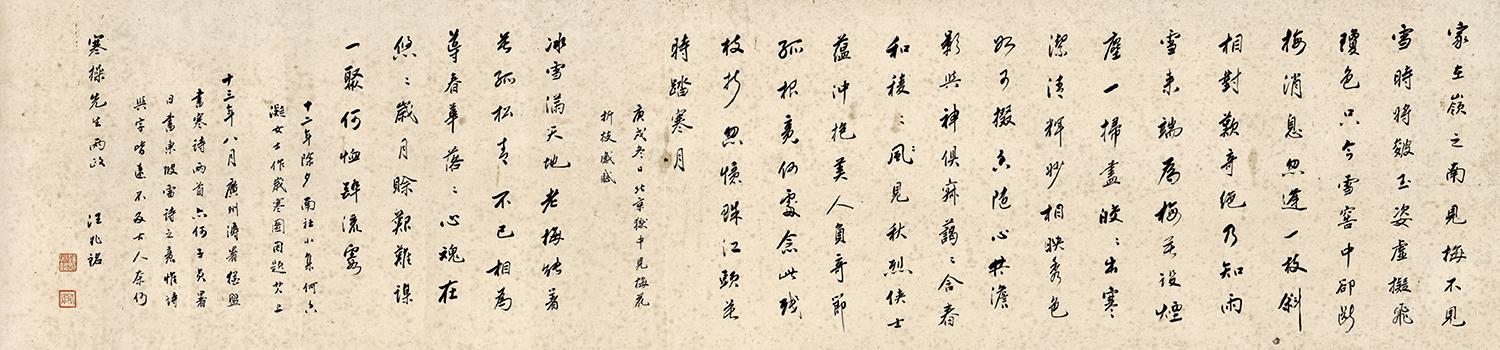 家在嶺之南見梅不見
雪時時將皴玉姿虛擬飛
瓊色只今雪窖中卻斷
梅消息忽逢一枝斜
相對歎奇絕乃知雨
雪來端為梅花設煙
塵一掃盡皎〻出寒
潔清輝妙相映秀色
如可掇香隨心共澹
影與神俱寂藹〻含春
和稜〻見秋烈俠士
蘊沖抱美人負奇節
孤根竟何處念此殘
枝折忽憶珠江頭花
時踏寒月
庚戌冬日北京獄中見梅花
折枝感賦
冰雪滿天地老梅能著
花孤松青不已相為
葆春華落〻心魂在
悠〻歲月賒艱難謀
一聚何恤辭流霞
十二年除夕南社小集何六
凝女士作歲寒圖因題其上
十三年八月廣州溽暑極
書寒詩兩首亦何子貞暑
日書東坡雪詩之意惟詩
與字皆遠不及古人奈何
寒操先生兩政
汪兆銘